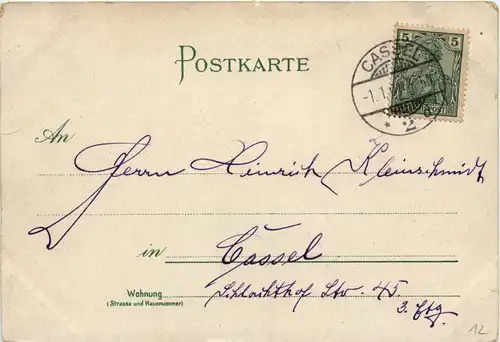 5 5
CASSEL
POSTKARTE
-1.1.
* 2
An
Herrn Heinrich Kleinschmidt
in Cassel
Wohnung
(Strasse und Hausnummer)
Schlachthof Str. 45
3. Etg.
12